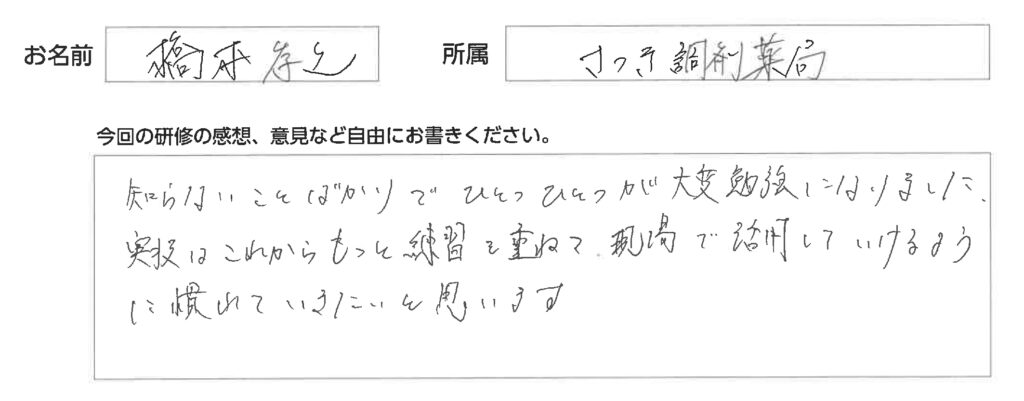 お名前 橋本孝之 所属 さつき調剤薬局
今回の研修の感想、意見など自由にお書きください。
知らないことばかりで ひとつひとつが大変勉強になりました.
実技はこれからもっと練習を重ねて、現場で活用していけるよう
に慣れていきたいと思います